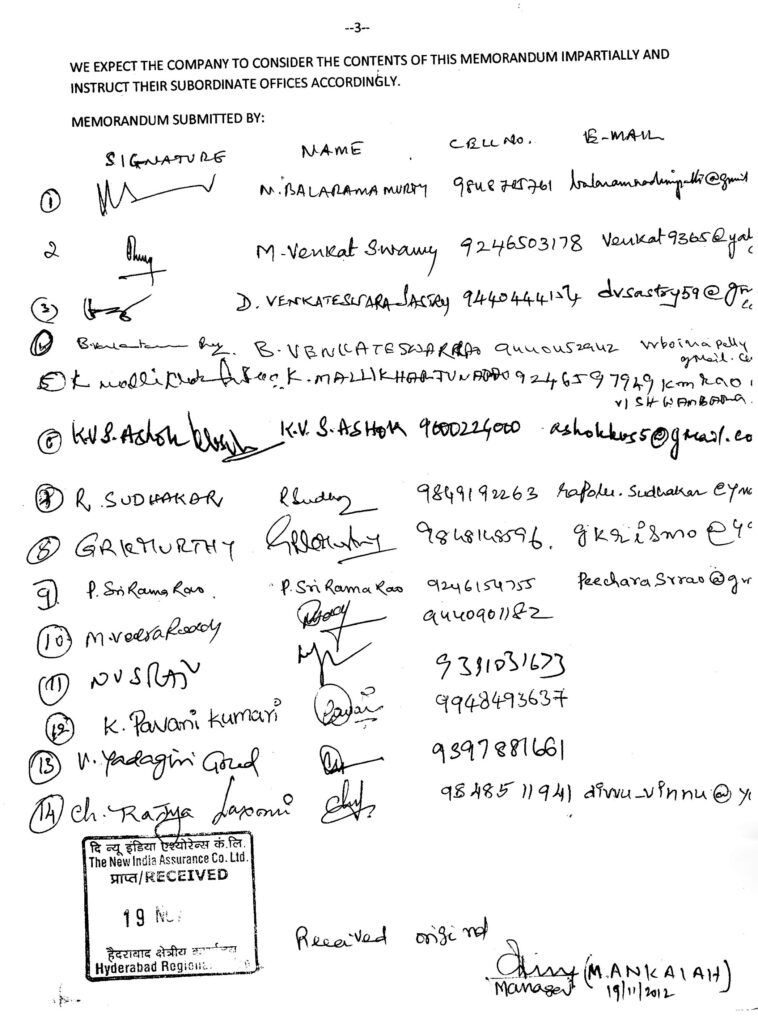 --3--
WE EXPECT THE COMPANY TO CONSIDER THE CONTENTS OF THIS MEMORANDUM IMPARTIALLY AND
INSTRUCT THEIR SUBORDINATE OFFICES ACCORDINGLY.
MEMORANDUM SUBMITTED BY:
SIGNATURE NAME CELL NO. E-MAIL
1 N. BALARAMA MURTY 9848785761
2 M. Venkat Swamy 9246503178 Venkat9365@ya
3 D. VENKATESWARA SASTRY dvsastry59@gm
B. VENKATESWARRAO
gmail.co
5 K. MALLIKHARJUNARAO 9246597949 kmrao
VISHWAMBARA
6 K.V.S. Ashok K.V.S. ASHOK 9000224000 ashokkvs5@gmail.co
7 R. SUDHAKAR 9849192263 rapolu.sudhakar@y
8 GRKMURTHY 9848148596. gkrismo@y
9 P. Sri Rama Rao. P. Sri Rama Rao 9246154755 Peecharasrrao@gm
10 M. Veera Reddy 9440901182
11 NVSRAJU 9391031673
12 K. Pavani Kumari 9948493637
13 V. Yadagiri Goud 9397881661
14 Ch. Rajya Laxmi 9848511941 divvu_vinnu@y
दि न्यू इंडिया एश्योरेन्स कं.लि.
The New India Assurance Co. Ltd.
प्राप्त/RECEIVED
19 NO
हैदराबाद क्षेत्रीय
Hyderabad Regional
Received original
(M. ANKAIAH)
Manager 19/11/2012